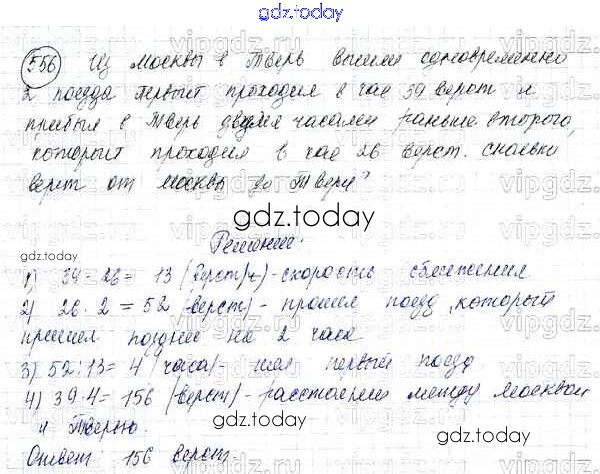 gdz.today
556 Из Москвы в Тверь вышли одновременно
2 поезда. Первый проходил в час 39 верст и
прибыл в Тверь двумя часами раньше второго,
который проходил в час 26 верст. Сколько
верст от Москвы до Твери?
gdz.today
Решение:
1) 39 - 26 = 13 (верст/ч) - скорость сближения
2) 26 · 2 = 52 (верст) - прошел поезд, который
пришел позднее на 2 часа
3) 52 : 13 = 4 (часа) - шел первый поезд
4) 39 · 4 = 156 (верст) - расстояние между Москвой
и Тверью.
Ответ: 156 верст.
gdz.today